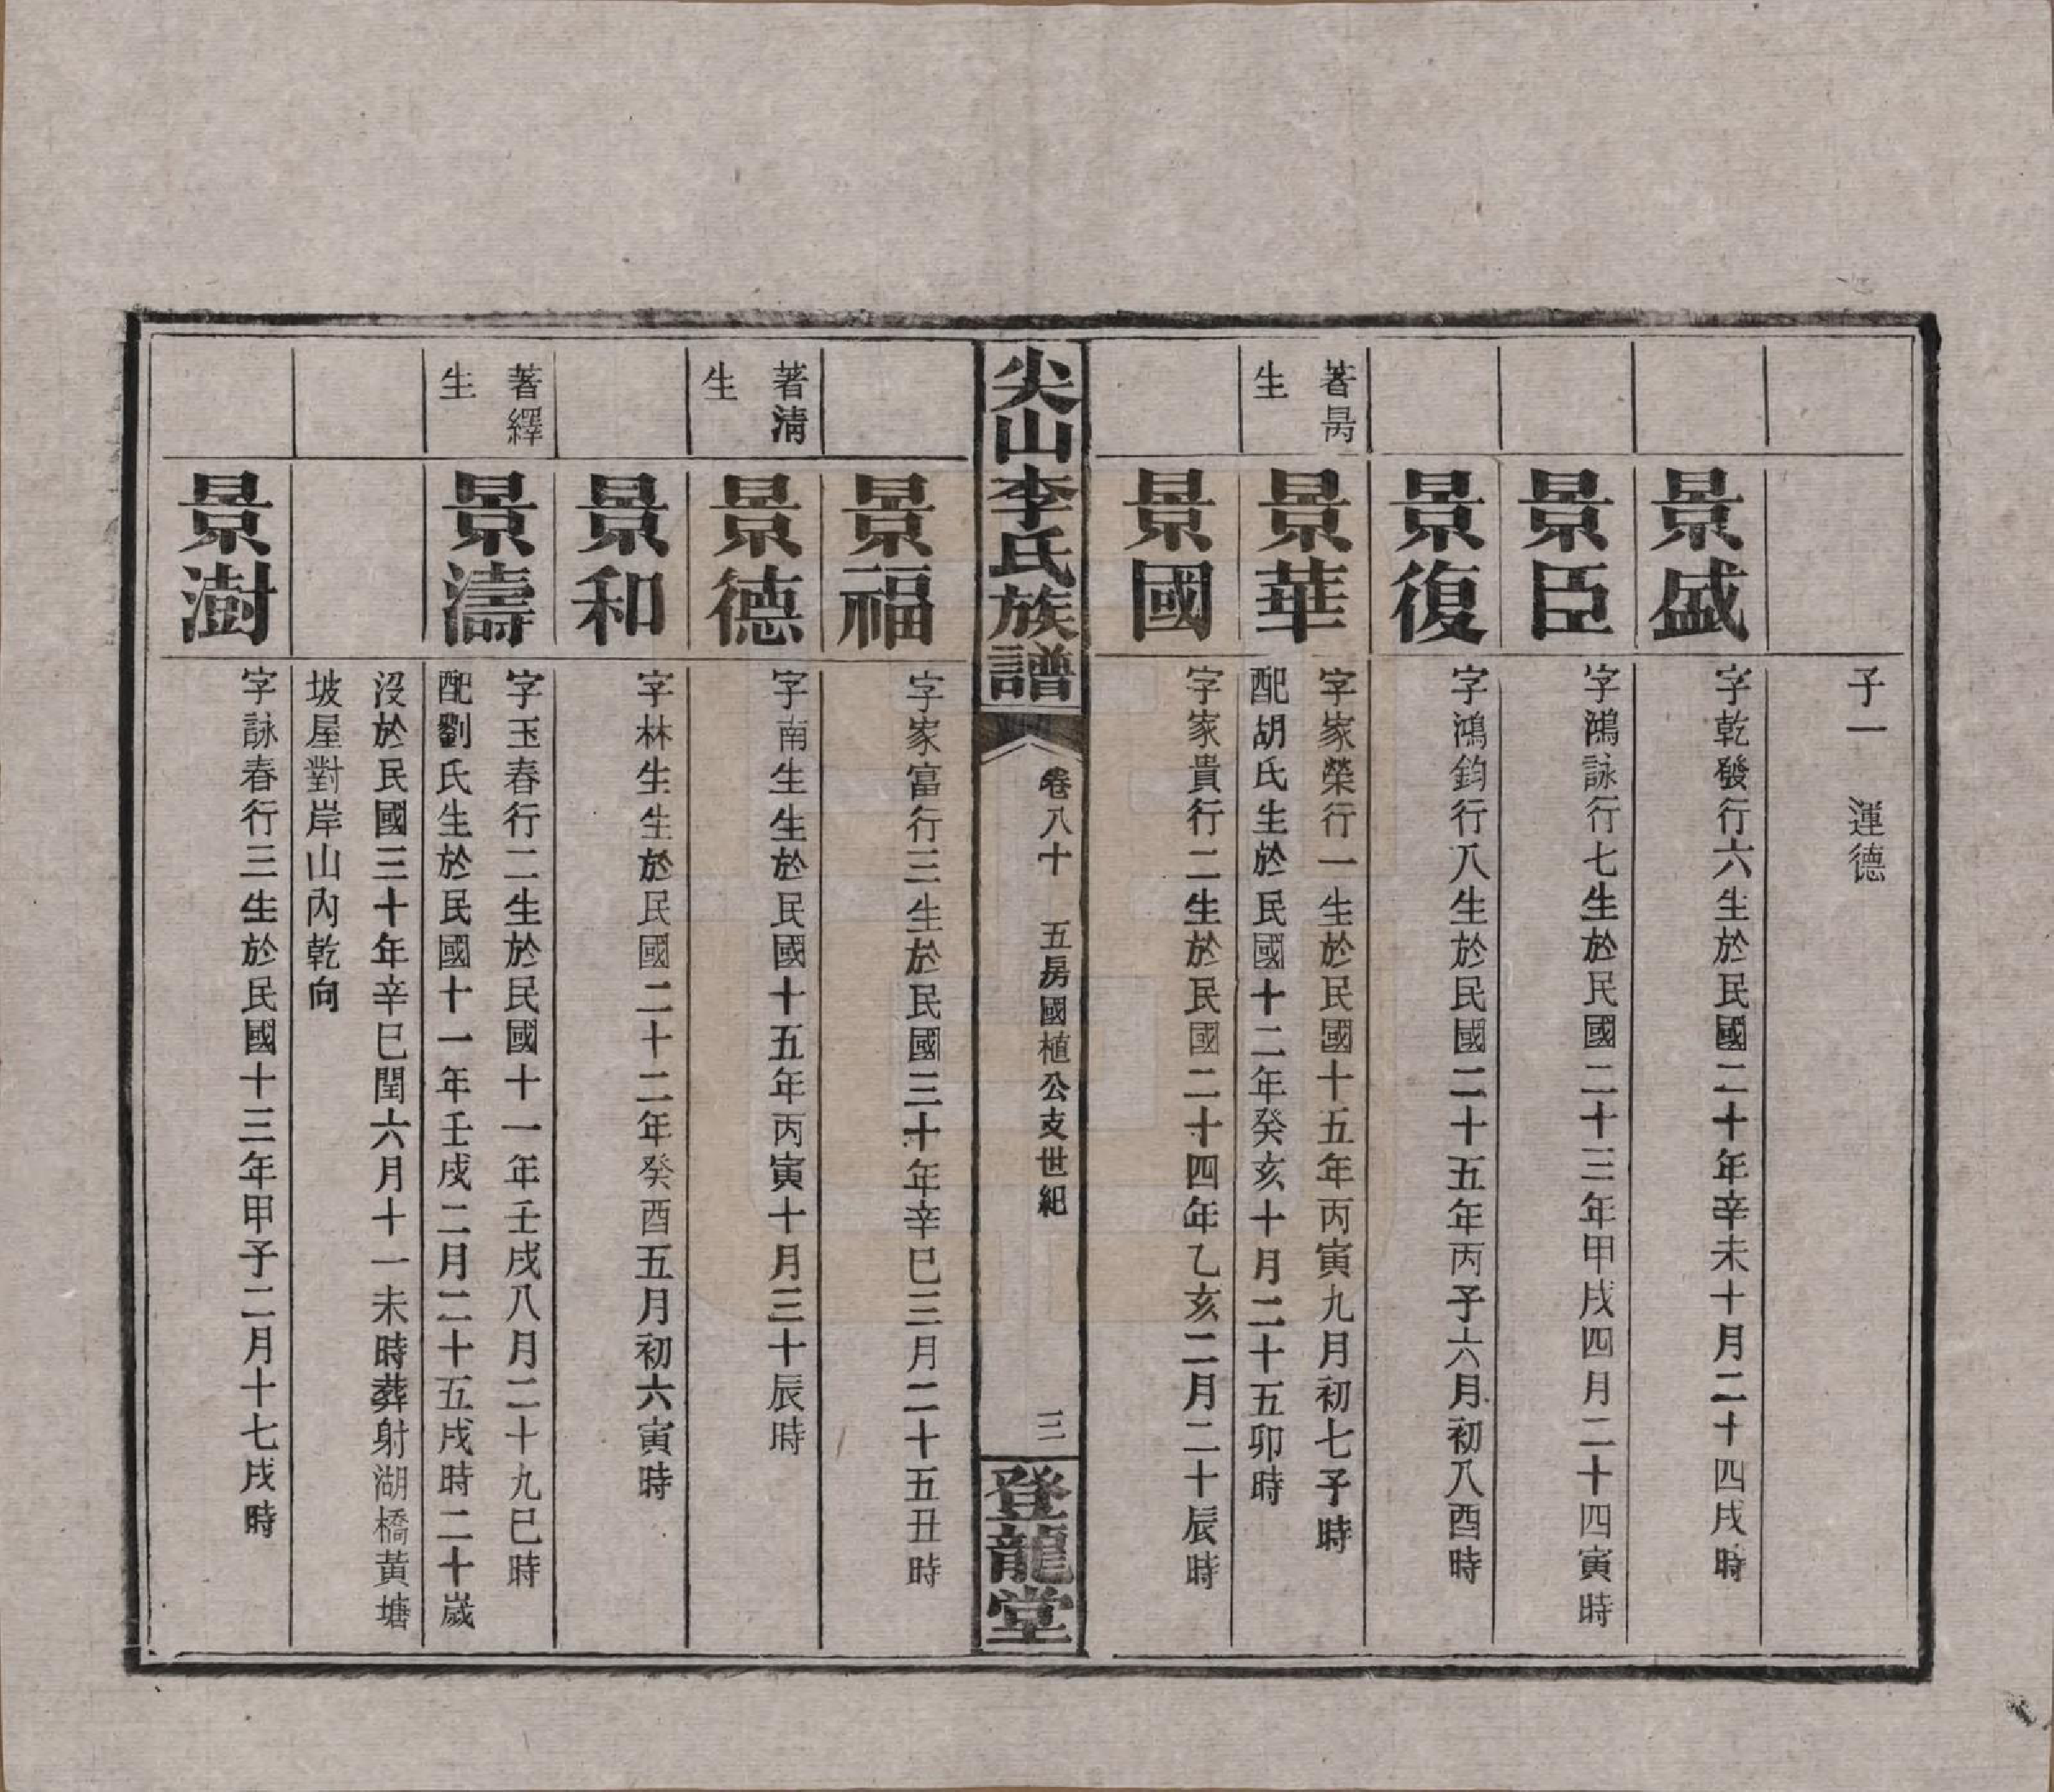 子一　運德
景盛
字乾發行六生於民國二十年辛未十月二十四戌時
景臣
字鴻詠行七生於民國二十三年甲戌四月二十四寅時
景復
字鴻鈞行八生於民國二十五年丙子六月初八酉時
著勗生
景華
字家榮行一生於民國十五年丙寅九月初七子時
配胡氏生於民國十二年癸亥十月二十五卯時
景國
字家貴行二生於民國二十四年乙亥二月二十辰時
尖山李氏族譜
卷八十　五房國植公支世紀
三
登龍堂
景福
字家富行三生於民國三十年辛巳三月二十五丑時
著清生
景德
字南生生於民國十五年丙寅十月三十辰時
景和
字林生生於民國二十二年癸酉五月初六寅時
著繹生
景濤
字玉春行二生於民國十一年壬戌八月二十九巳時
配劉氏生於民國十一年壬戌二月二十五戌時二十歲
沒於民國三十年辛巳閏六月十一未時葬射湖橋黃塘
坡屋對岸山內乾向
景澍
字詠春行三生於民國十三年甲子二月十七戌時